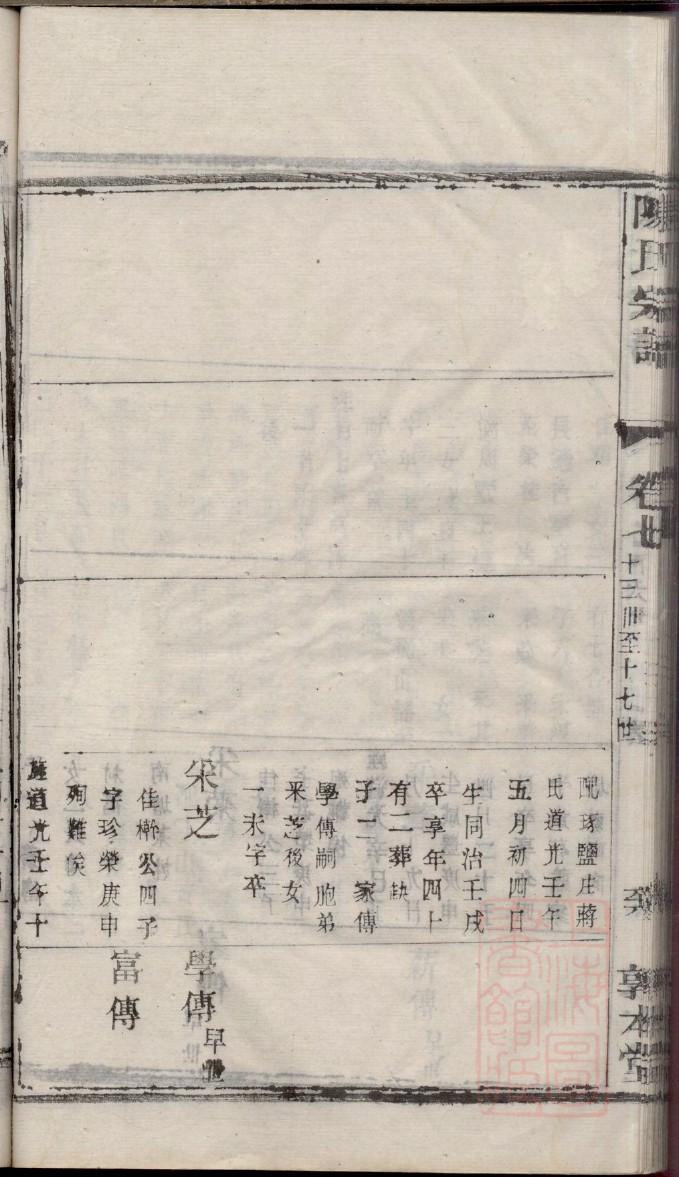 陳氏宗譜
卷七
十三世至十七世
敦本堂
配琢鹽庄蔣
氏道光壬午
五月初四日
生同治壬戌
卒享年四十
有二葬缺
子二 家傳
學傳嗣胞弟
采芝後女
一未字卒
采芝
佳櫸公四子
字珍榮庚申
殉難俟
旌道光壬午十
學傳早世
富傳